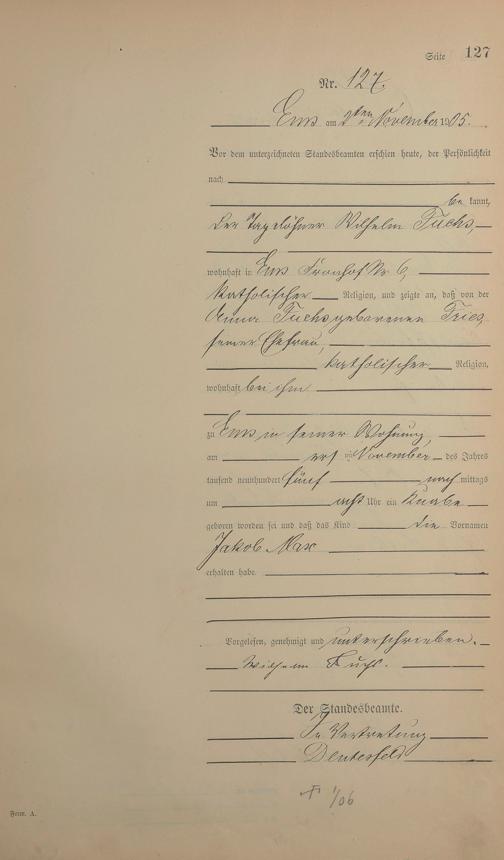 Seite 127
Nr. 127.
Ems am 2ten November 1905.
Vor dem unterzeichneten Standesbeamten erschien heute, der Persönlichkeit
nach
be kannt,
der Tagelöhner Wilhelm Fuchs,
wohnhaft in Ems Fronhof Nr 6,
katholischer Religion, und zeigte an, daß von der
Anna Fuchs geborenen
seiner Ehefrau,
katholischer Religion,
wohnhaft bei ihm
zu Ems in seiner Wohnung,
am ersten November des Jahres
tausend neunhundert fünf nach mittags
um acht Uhr ein Knabe
geboren worden sei und daß das Kind die Vornamen
Jakob Max
erhalten habe.
Vorgelesen, genehmigt und unterschrieben.
Wilhelm Fuchs.
Der Standesbeamte.
In Vertretung
† 1/06
Form. A.